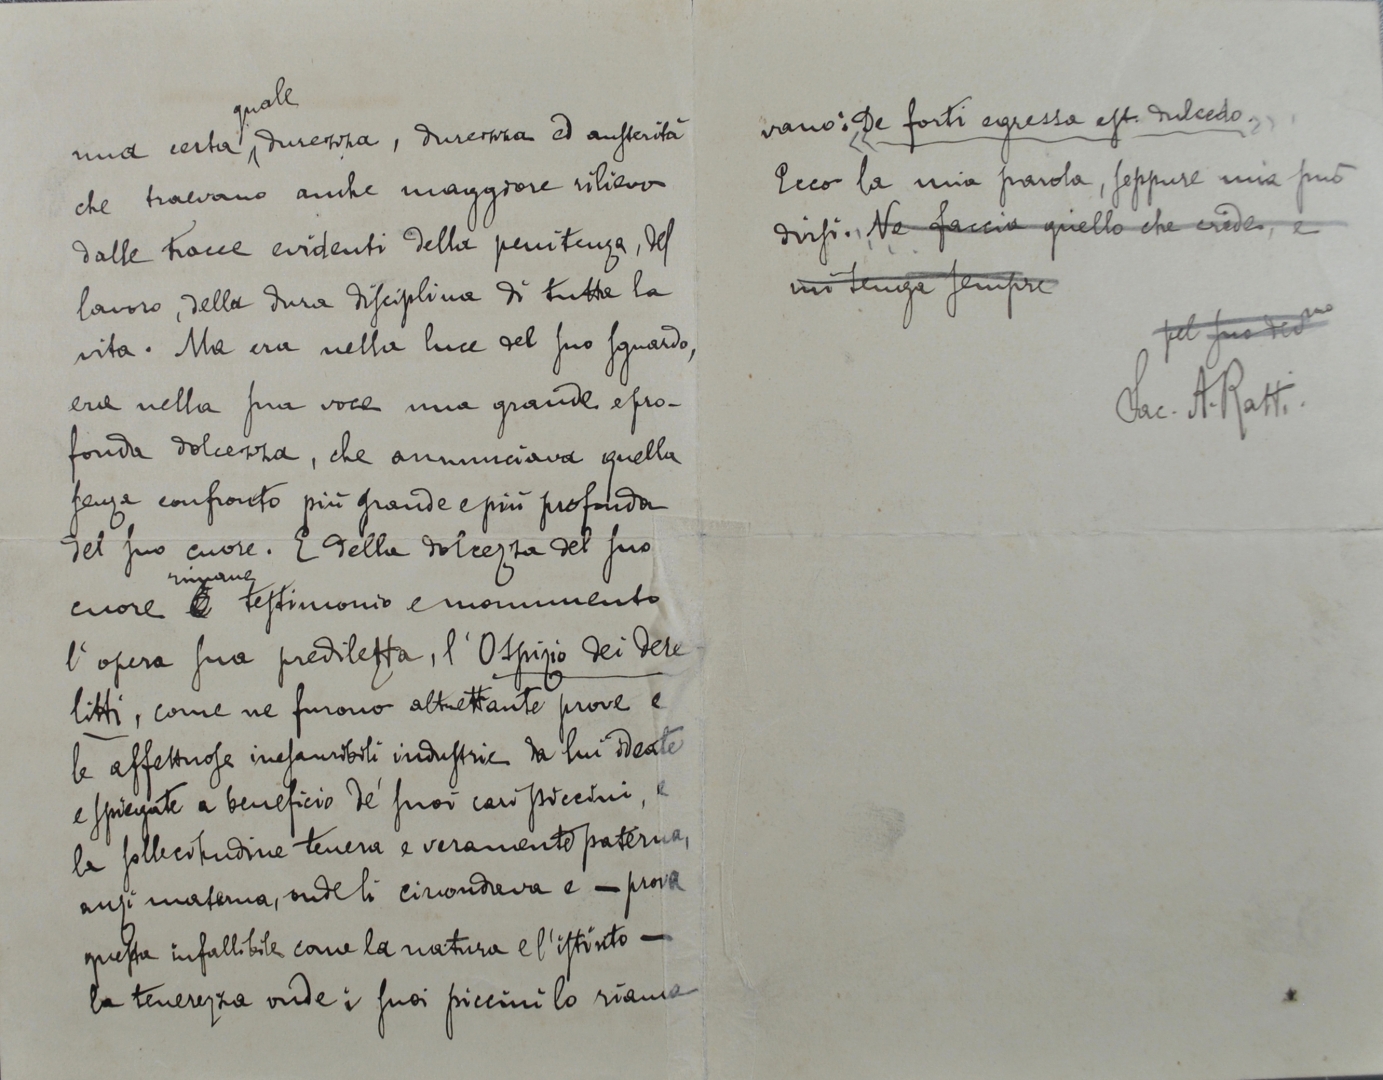 quale
una certa durezza, durezza ed austerità
che traevano anche maggiore rilievo
dalle tracce evidenti della penitenza, del
lavoro, della dura disciplina di tutta la
vita. Ma era nella luce del suo sguardo,
era nella sua voce una grande e pro-
fonda dolcezza, che annunciava quella
senza confronto più grande e più profonda
del suo cuore. E della dolcezza del suo
rimane
cuore è testimonio e monumento
l'opera sua prediletta, l'Ospizio dei dere
litti, come ne furono altrettante prove e
le affettuose inesauribili industrie da lui ideate
e spiegate a beneficio de' suoi cari piccini, e
la sollecitudine tenera e veramente paterna,
anzi materna, onde li circondava e — prova
questa infallibile come la natura e l'istinto —
la tenerezza onde i suoi piccini lo riama
vano: "De forti egressa est dulcedo."
Ecco la mia parola, seppure mia può
dirsi. Ne faccia quello che crede, e
mi tenga sempre
pel suo dev mo
Sac. A. Ratti.